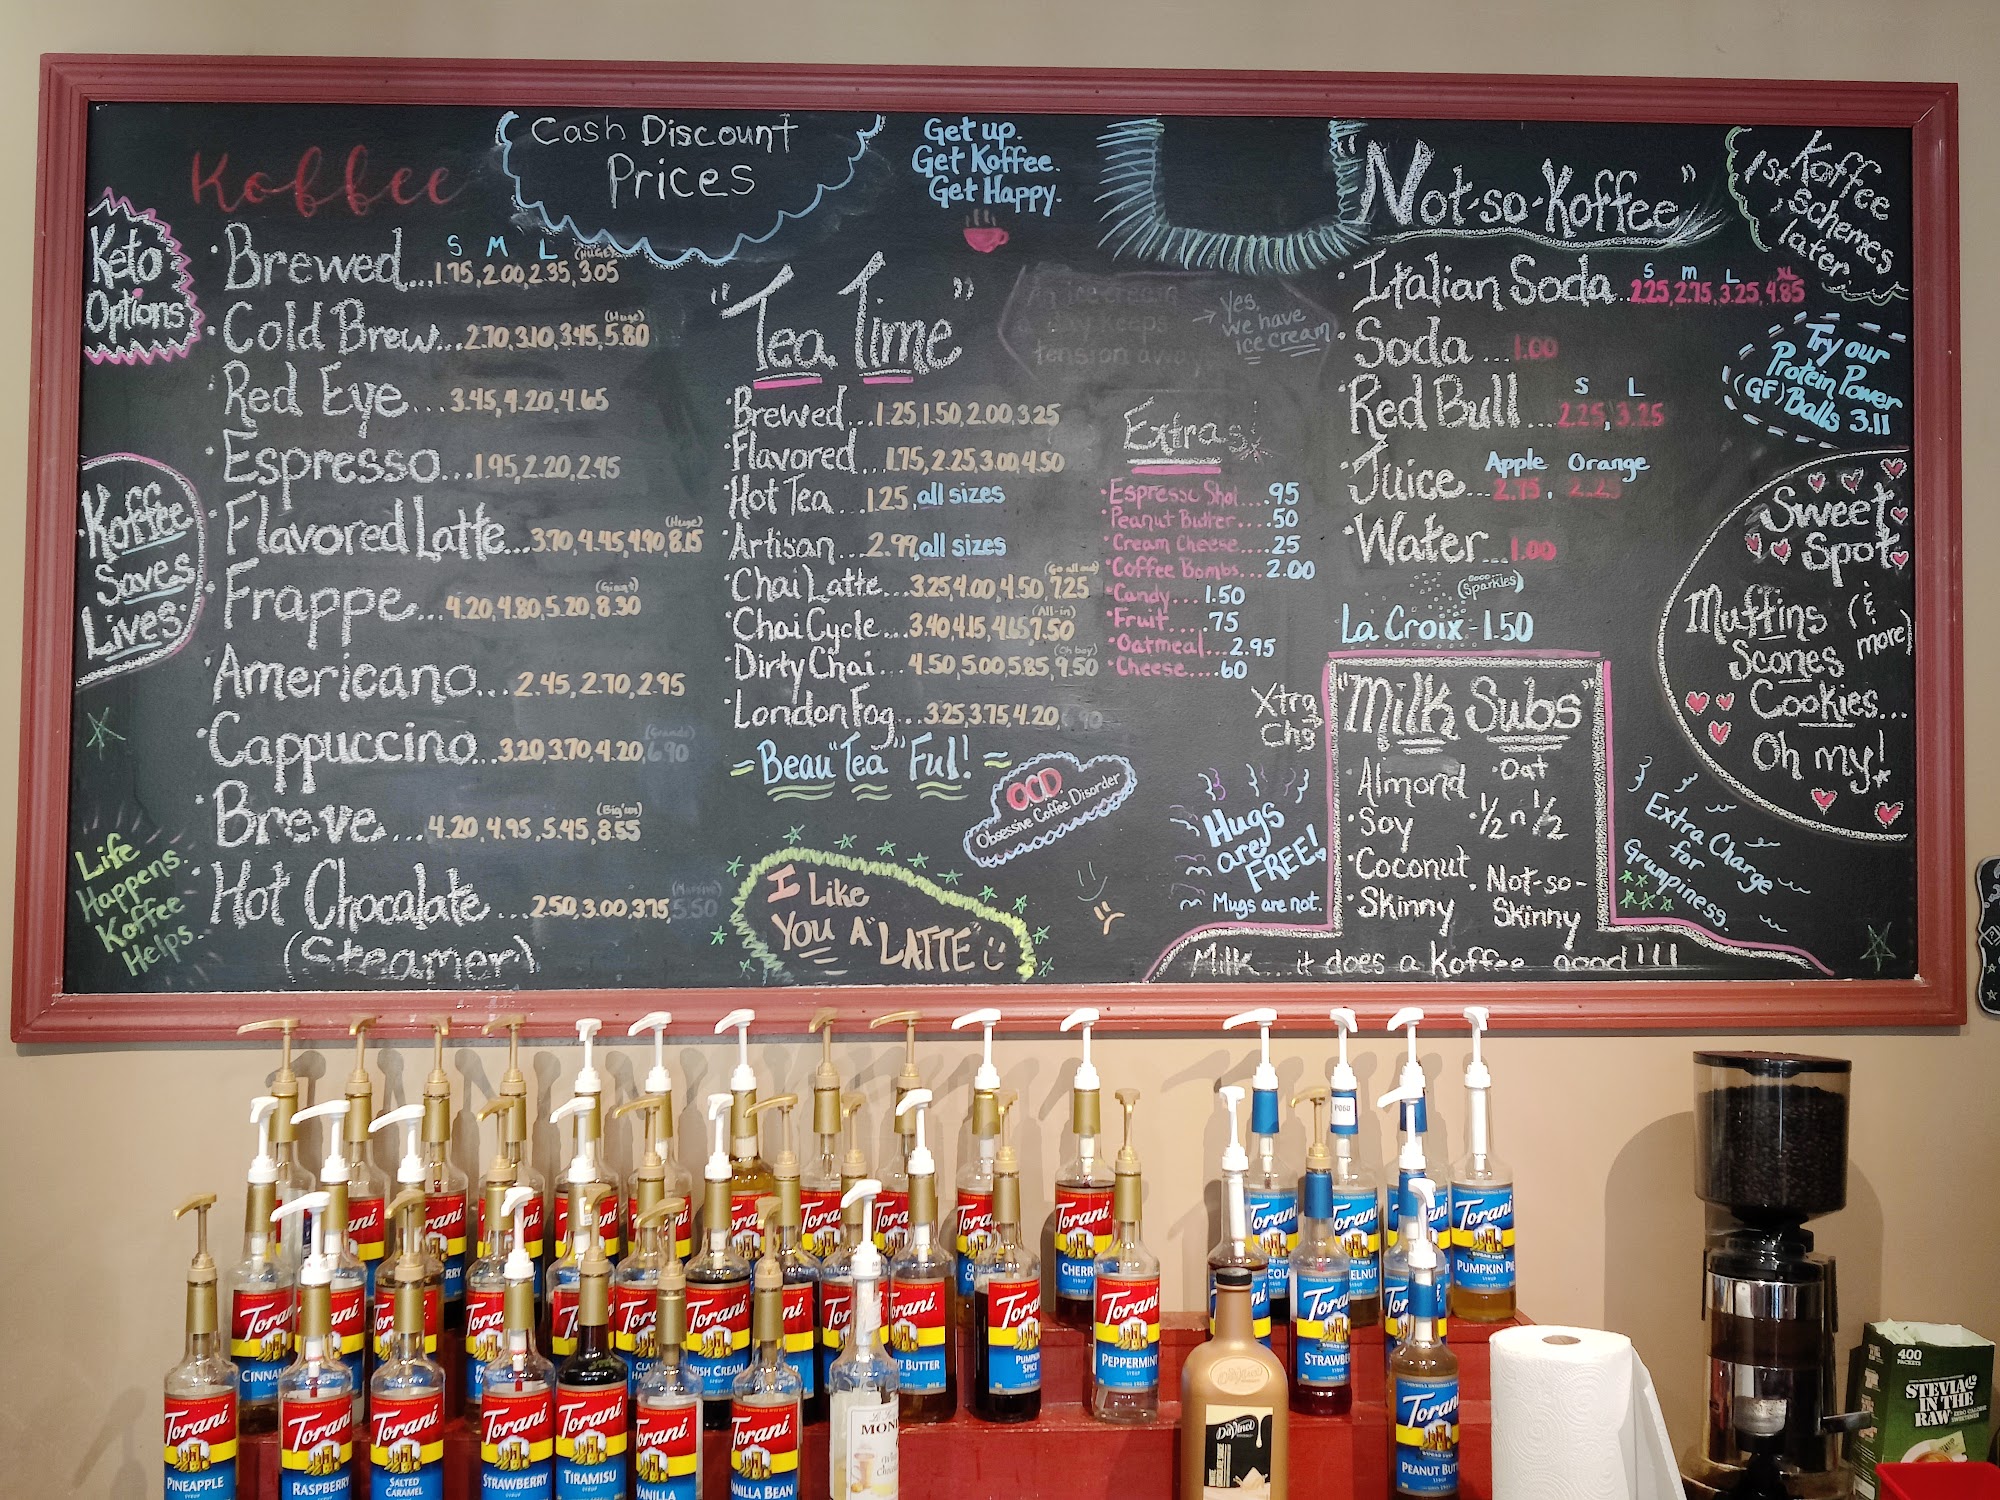 Koffee
Cash Discount
Prices
Get up.
Get Koffee.
Get Happy.
Keto
Options
S M L (HUGE)
Brewed...1.75, 2.00, 2.35, 3.05
(Huge)
Cold Brew...2.70, 3.10, 3.45, 5.80
Red Eye...3.45, 4.20, 4.65
Espresso...1.95, 2.20, 2.45
(Huge)
Flavored Latte...3.70, 4.45, 4.90, 8.15
Frappe...4.20, 4.80, 5.20, 8.30
Americano...2.45, 2.70, 2.95
(Grande)
Cappuccino...3.20, 3.70, 4.20, 6.90
(Big'un)
Breve...4.20, 4.95, 5.45, 8.55
Hot Chocolate...2.50, 3.00, 3.75, 5.50
(Steamer)
Koffee
Saves
Lives
Life
Happens.
Koffee
Helps.
"Tea Time"
Brewed...1.25, 1.50, 2.00, 3.25
Flavored...1.75, 2.25, 3.00, 4.50
Hot Tea...1.25, all sizes
Artisan...2.99, all sizes
(Go all out)
Chai Latte...3.25, 4.00, 4.50, 7.25
(All-in)
Chai Cycle...3.40, 4.15, 4.65, 7.50
(Oh boy)
Dirty Chai...4.50, 5.00, 5.85, 9.50
London Fog...3.25, 3.75, 4.20,
Beau"Tea"Ful!
OCD
Obsessive Coffee Disorder
I Like
You A "LATTE"
ice cream
keeps
tension away
Yes,
we have
ice cream
Extras!
Espresso Shot....95
Peanut Butter....50
Cream Cheese....25
Coffee Bombs...2.00
Candy....1.50
Fruit.....75
Oatmeal...2.95
Cheese....60
"Not-so-Koffee"
S M L XL
Italian Soda...2.25, 2.75, 3.25, 4.85
Soda...1.00
S L
Red Bull...2.25, 3.25
Apple Orange
Juice...2.75, 2.25
Water...1.00
(Sparkles)
La Croix-1.50
1st Koffee
Schemes
later.
Try our
Protein Power
(GF) Balls 3.11
Sweet
Spot
Muffins
(& more)
Scones
Cookies...
Oh my!
Xtra
Chg
"Milk Subs"
Almond
Oat
Soy
½ n ½
Coconut
Skinny
Not-so-
Skinny
Milk...it does a Koffee good!!!
Hugs
are
FREE!
Mugs are not.
Extra Charge
for
Grumpiness.
Torani
CHERR
Torani
PUMPKIN PIE
SYRUP
Torani
CINNA
Torani
IRISH CREAM
Torani
T BUTTER
Torani
PUMPKIN
SPICE
Torani
PEPPERMINT
Torani
STRAWBE
Torani
PINEAPPLE
Torani
RASPBERRY
Torani
SALTED
CARAMEL
Torani
STRAWBERRY
Torani
TIRAMISU
Torani
VANILLA
Torani
VANILLA BEAN
MONI
DaVinci
Torani
PEANUT BUTT
400
PACKETS
STEVIA
IN THE
RAW